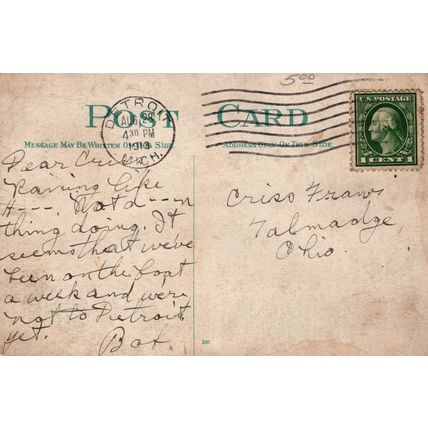 5.00
POST CARD
DETROIT
AUG
4 30 PM
1913
MICH.
U.S. POSTAGE
1 CENT 1
MESSAGE MAY BE WRITTEN ON THIS SIDE
ADDRESS ONLY ON THIS SIDE
Dear Criss
Raining like
H--- Not a d--n
thing doing. It
seems that we've
been on the boat
a week and we're
not to Detroit
yet.
Bat.
Criss Franz
Talmadge,
Ohio.